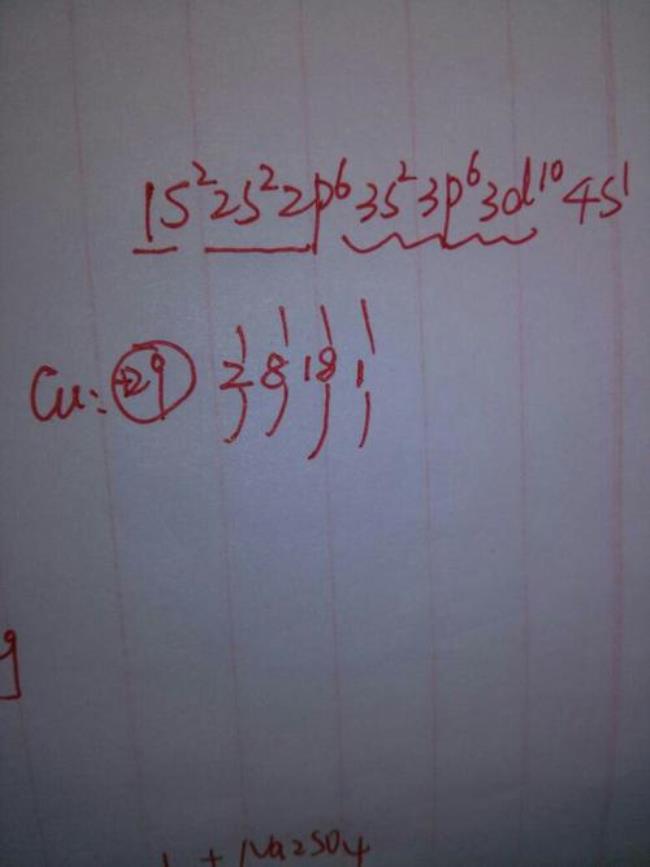 1s²2s²2p⁶3s²3p⁶3d¹⁰4s¹
Cu: +29 2 8 18 1
+ Na2SO4